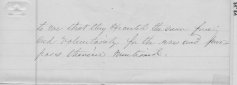 to me that they executed the same free
and voluntarily for the uses and pur-
poses therein mentioned.